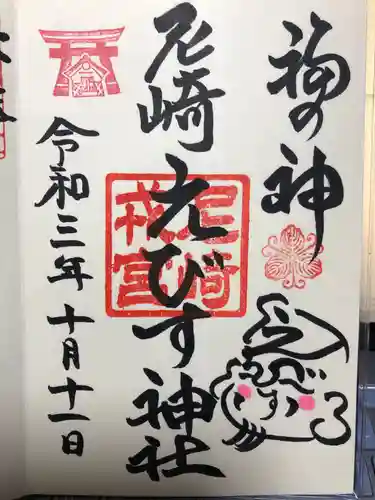 福の神
尼崎えびす神社
尼崎
戎宮
令和三年十月十一日